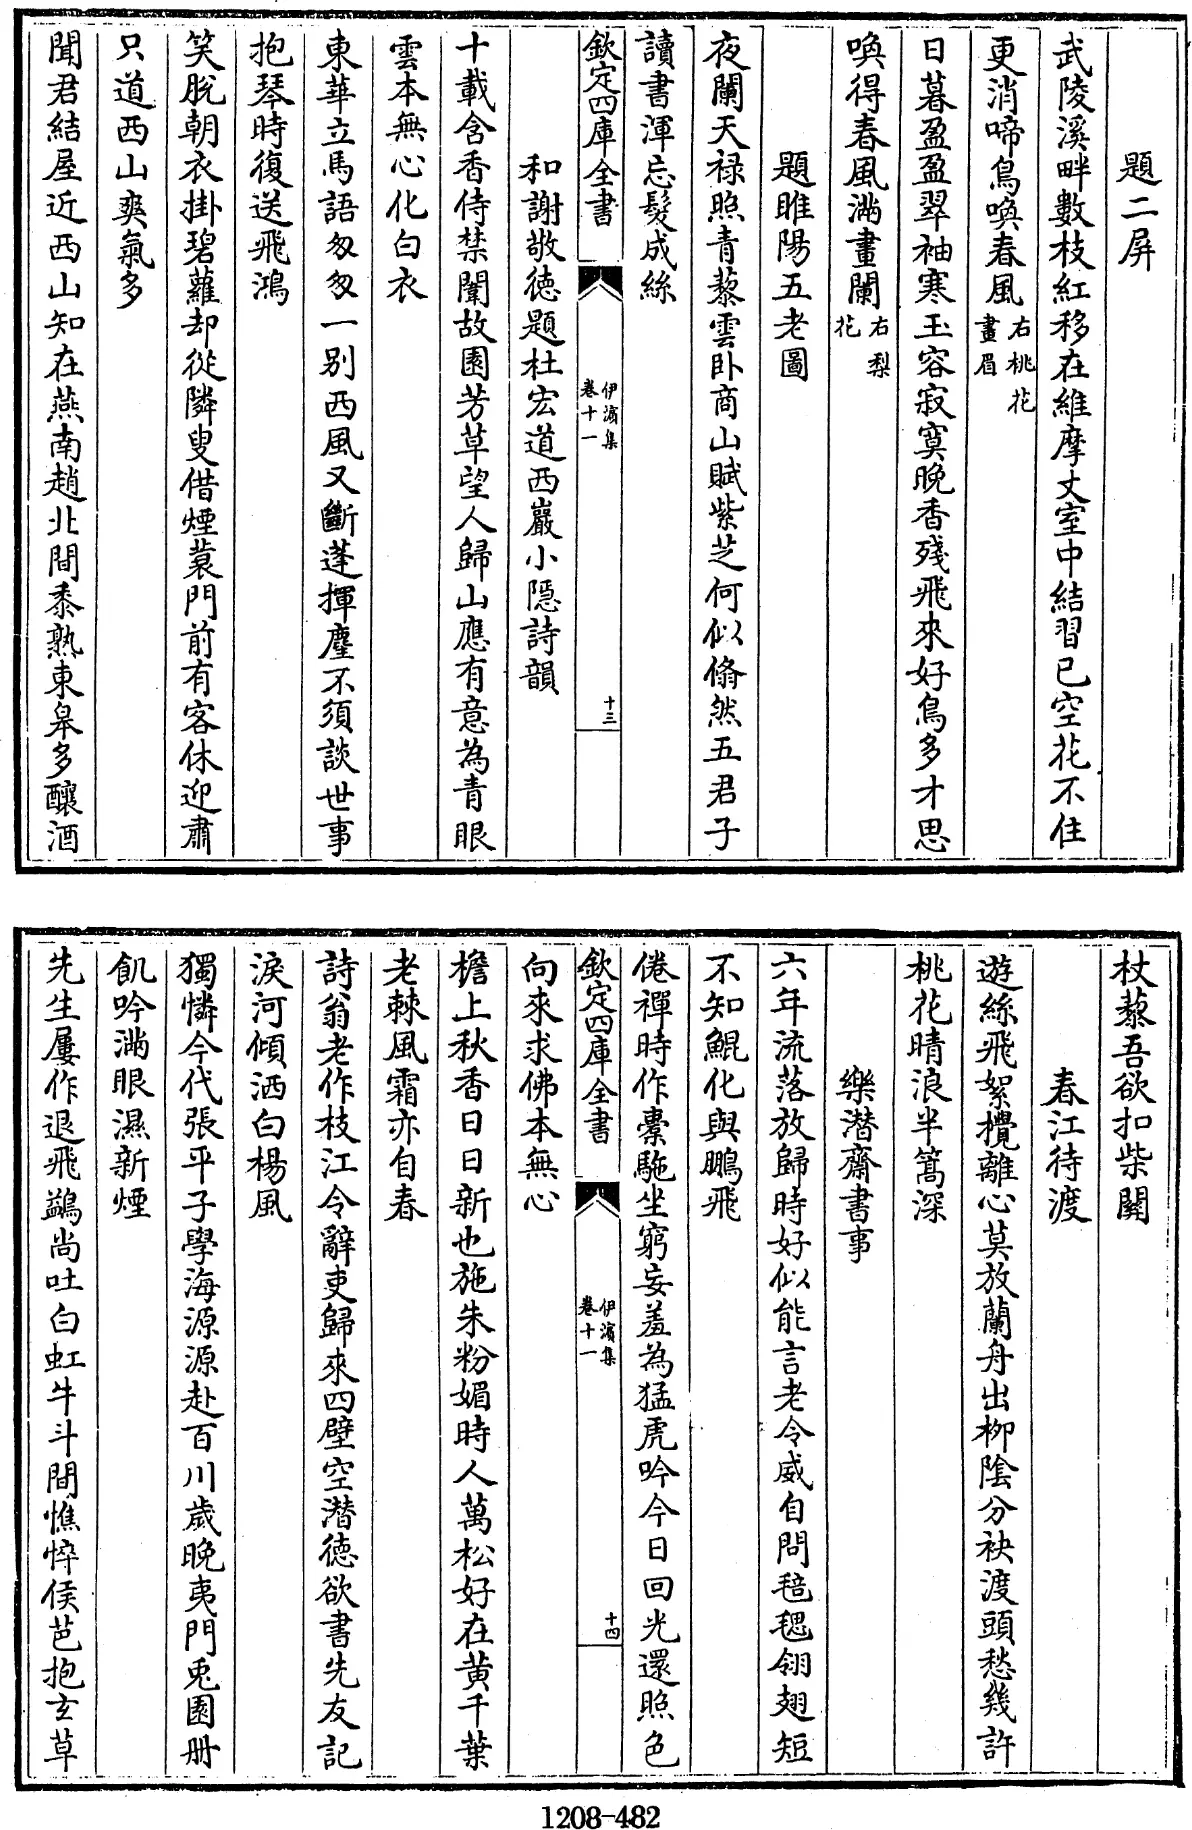 題二屏
武陵溪畔數枝紅移在維摩丈室中結習已空花不住
更消啼鳥喚春風右桃花畫眉
日暮盈盈翠袖寒玉容寂寞晚香殘飛來好鳥多才思
喚得春風滿畫闌右梨花
題睢陽五老圖
夜闌天祿照青藜雲卧商山賦紫芝何似翛然五君子
讀書渾忘髮成絲
欽定四庫全書
伊濱集
卷十一
十三
和謝敬德題杜宏道西巖小隱詩韻
十載含香侍禁闈故園芳草望人歸山應有意為青眼
雲本無心化白衣
東華立馬語匆匆一別西風又斷蓬揮麈不須談世事
抱琴時復送飛鴻
笑脫朝衣掛碧蘿却從隣叟借煙蓑門前有客休迎肅
只道西山爽氣多
聞君結屋近西山知在燕南趙北間黍熟東皋多釀酒
杖藜吾欲扣柴關
春江待渡
遊絲飛絮攪離心莫放蘭舟出柳陰分袂渡頭愁幾許
桃花晴浪半篙深
樂潛齋書事
六年流落放歸時好似能言老令威自問毰毸翎翅短
不知鯤化與鵬飛
倦禪時作橐駞坐窮妄羞為猛虎吟今日回光還照色
向來求佛本無心
欽定四庫全書
伊濱集
卷十一
十四
檐上秋香日日新也施朱粉媚時人萬松好在黃千葉
老棘風霜亦自春
詩翁老作枝江令辭吏歸來四壁空潛德欲書先友記
淚河傾洒白楊風
獨憐今代張平子學海源源赴百川歲晚夷門兎園冊
飢吟滿眼濕新煙
先生屢作退飛鷁尚吐白虹牛斗間憔悴侯芭抱玄草
1208-482